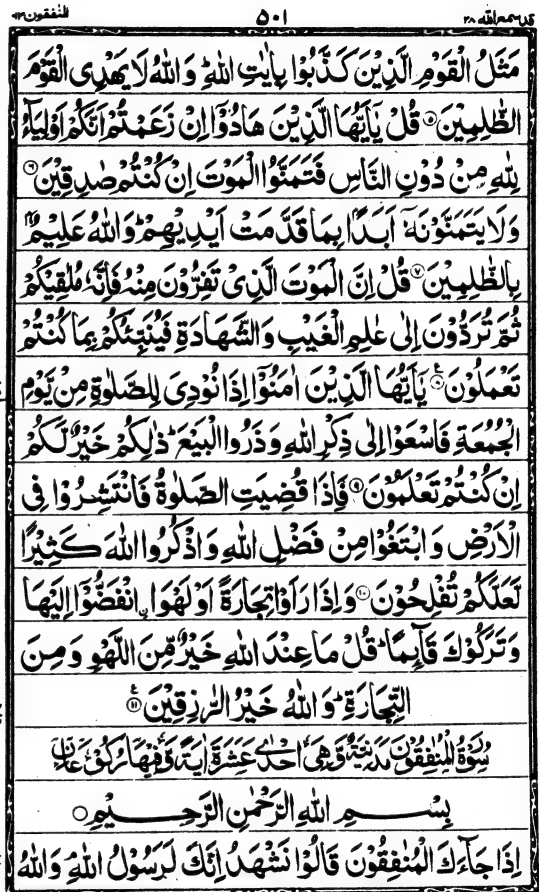 قد سمع الله ٢٨ ٥٠١ المنٰفقون ٦٣
مَثَلُ الْقَوْمِ الَّذِيْنَ كَذَّبُوْا بِاٰيٰتِ اللّٰهِ ؕ وَاللّٰهُ لَا يَهْدِى الْقَوْمَ
الظّٰلِمِيْنَ ۝۵ قُلْ يٰۤاَيُّهَا الَّذِيْنَ هَادُوْۤا اِنْ زَعَمْتُمْ اَنَّكُمْ اَوْلِيَآءُ
لِلّٰهِ مِنْ دُوْنِ النَّاسِ فَتَمَنَّوُا الْمَوْتَ اِنْ كُنْتُمْ صٰدِقِيْنَ ۝۶
وَلَا يَتَمَنَّوْنَهٗۤ اَبَدًۢا بِمَا قَدَّمَتْ اَيْدِيْهِمْ ؕ وَاللّٰهُ عَلِيْمٌۢ
بِالظّٰلِمِيْنَ ۝۷ قُلْ اِنَّ الْمَوْتَ الَّذِىْ تَفِرُّوْنَ مِنْهُ فَاِنَّهٗ مُلٰقِيْكُمْ
ثُمَّ تُرَدُّوْنَ اِلٰى عٰلِمِ الْغَيْبِ وَالشَّهَادَةِ فَيُنَبِّئُكُمْ بِمَا كُنْتُمْ
تَعْمَلُوْنَ ۝۸ يٰۤاَيُّهَا الَّذِيْنَ اٰمَنُوْۤا اِذَا نُوْدِىَ لِلصَّلٰوةِ مِنْ يَّوْمِ
الْجُمُعَةِ فَاسْعَوْا اِلٰى ذِكْرِ اللّٰهِ وَذَرُوا الْبَيْعَ ؕ ذٰلِكُمْ خَيْرٌ لَّكُمْ
اِنْ كُنْتُمْ تَعْلَمُوْنَ ۝۹ فَاِذَا قُضِيَتِ الصَّلٰوةُ فَانْتَشِرُوْا فِى
الْاَرْضِ وَابْتَغُوْا مِنْ فَضْلِ اللّٰهِ وَاذْكُرُوا اللّٰهَ كَثِيْرًا
لَّعَلَّكُمْ تُفْلِحُوْنَ ۝۱۰ وَاِذَا رَاَوْا تِجَارَةً اَوْ لَهْوَا ۨانْفَضُّوْۤا اِلَيْهَا
وَتَرَكُوْكَ قَآئِمًا ؕ قُلْ مَا عِنْدَ اللّٰهِ خَيْرٌ مِّنَ اللَّهْوِ وَمِنَ
التِّجَارَةِ ؕ وَاللّٰهُ خَيْرُ الرّٰزِقِيْنَ ۝۱۱
سُوْرَةُ الْمُنٰفِقُوْنَ مَدَنِيَّةٌ وَّهِىَ اِحْدٰى عَشَرَةَ اٰيَةً وَّفِيْهَا رُكُوْعَانِ
بِسْمِ اللّٰهِ الرَّحْمٰنِ الرَّحِيْمِ ۝
اِذَا جَآءَكَ الْمُنٰفِقُوْنَ قَالُوْا نَشْهَدُ اِنَّكَ لَرَسُوْلُ اللّٰهِ ۘ وَاللّٰهُ